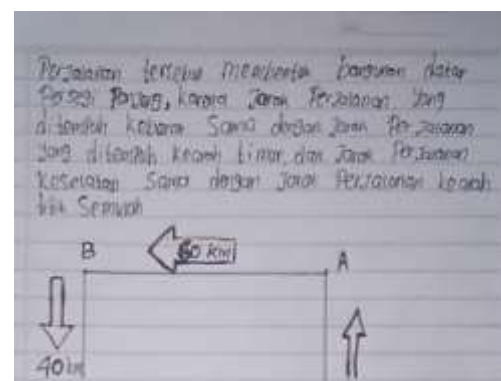 Perjalanan tersebut membentuk bangunan datar
Persegi Panjang, karena Jarak Perjalanan yang
ditempuh kebarat Sama dengan Jarak Perjalanan
yang ditempuh kearah timur, dan Jarak Perjalanan
Keselatan Sama dengan Jarak Perjalanan kearah
titik Semula
B
60 km
A
40 km